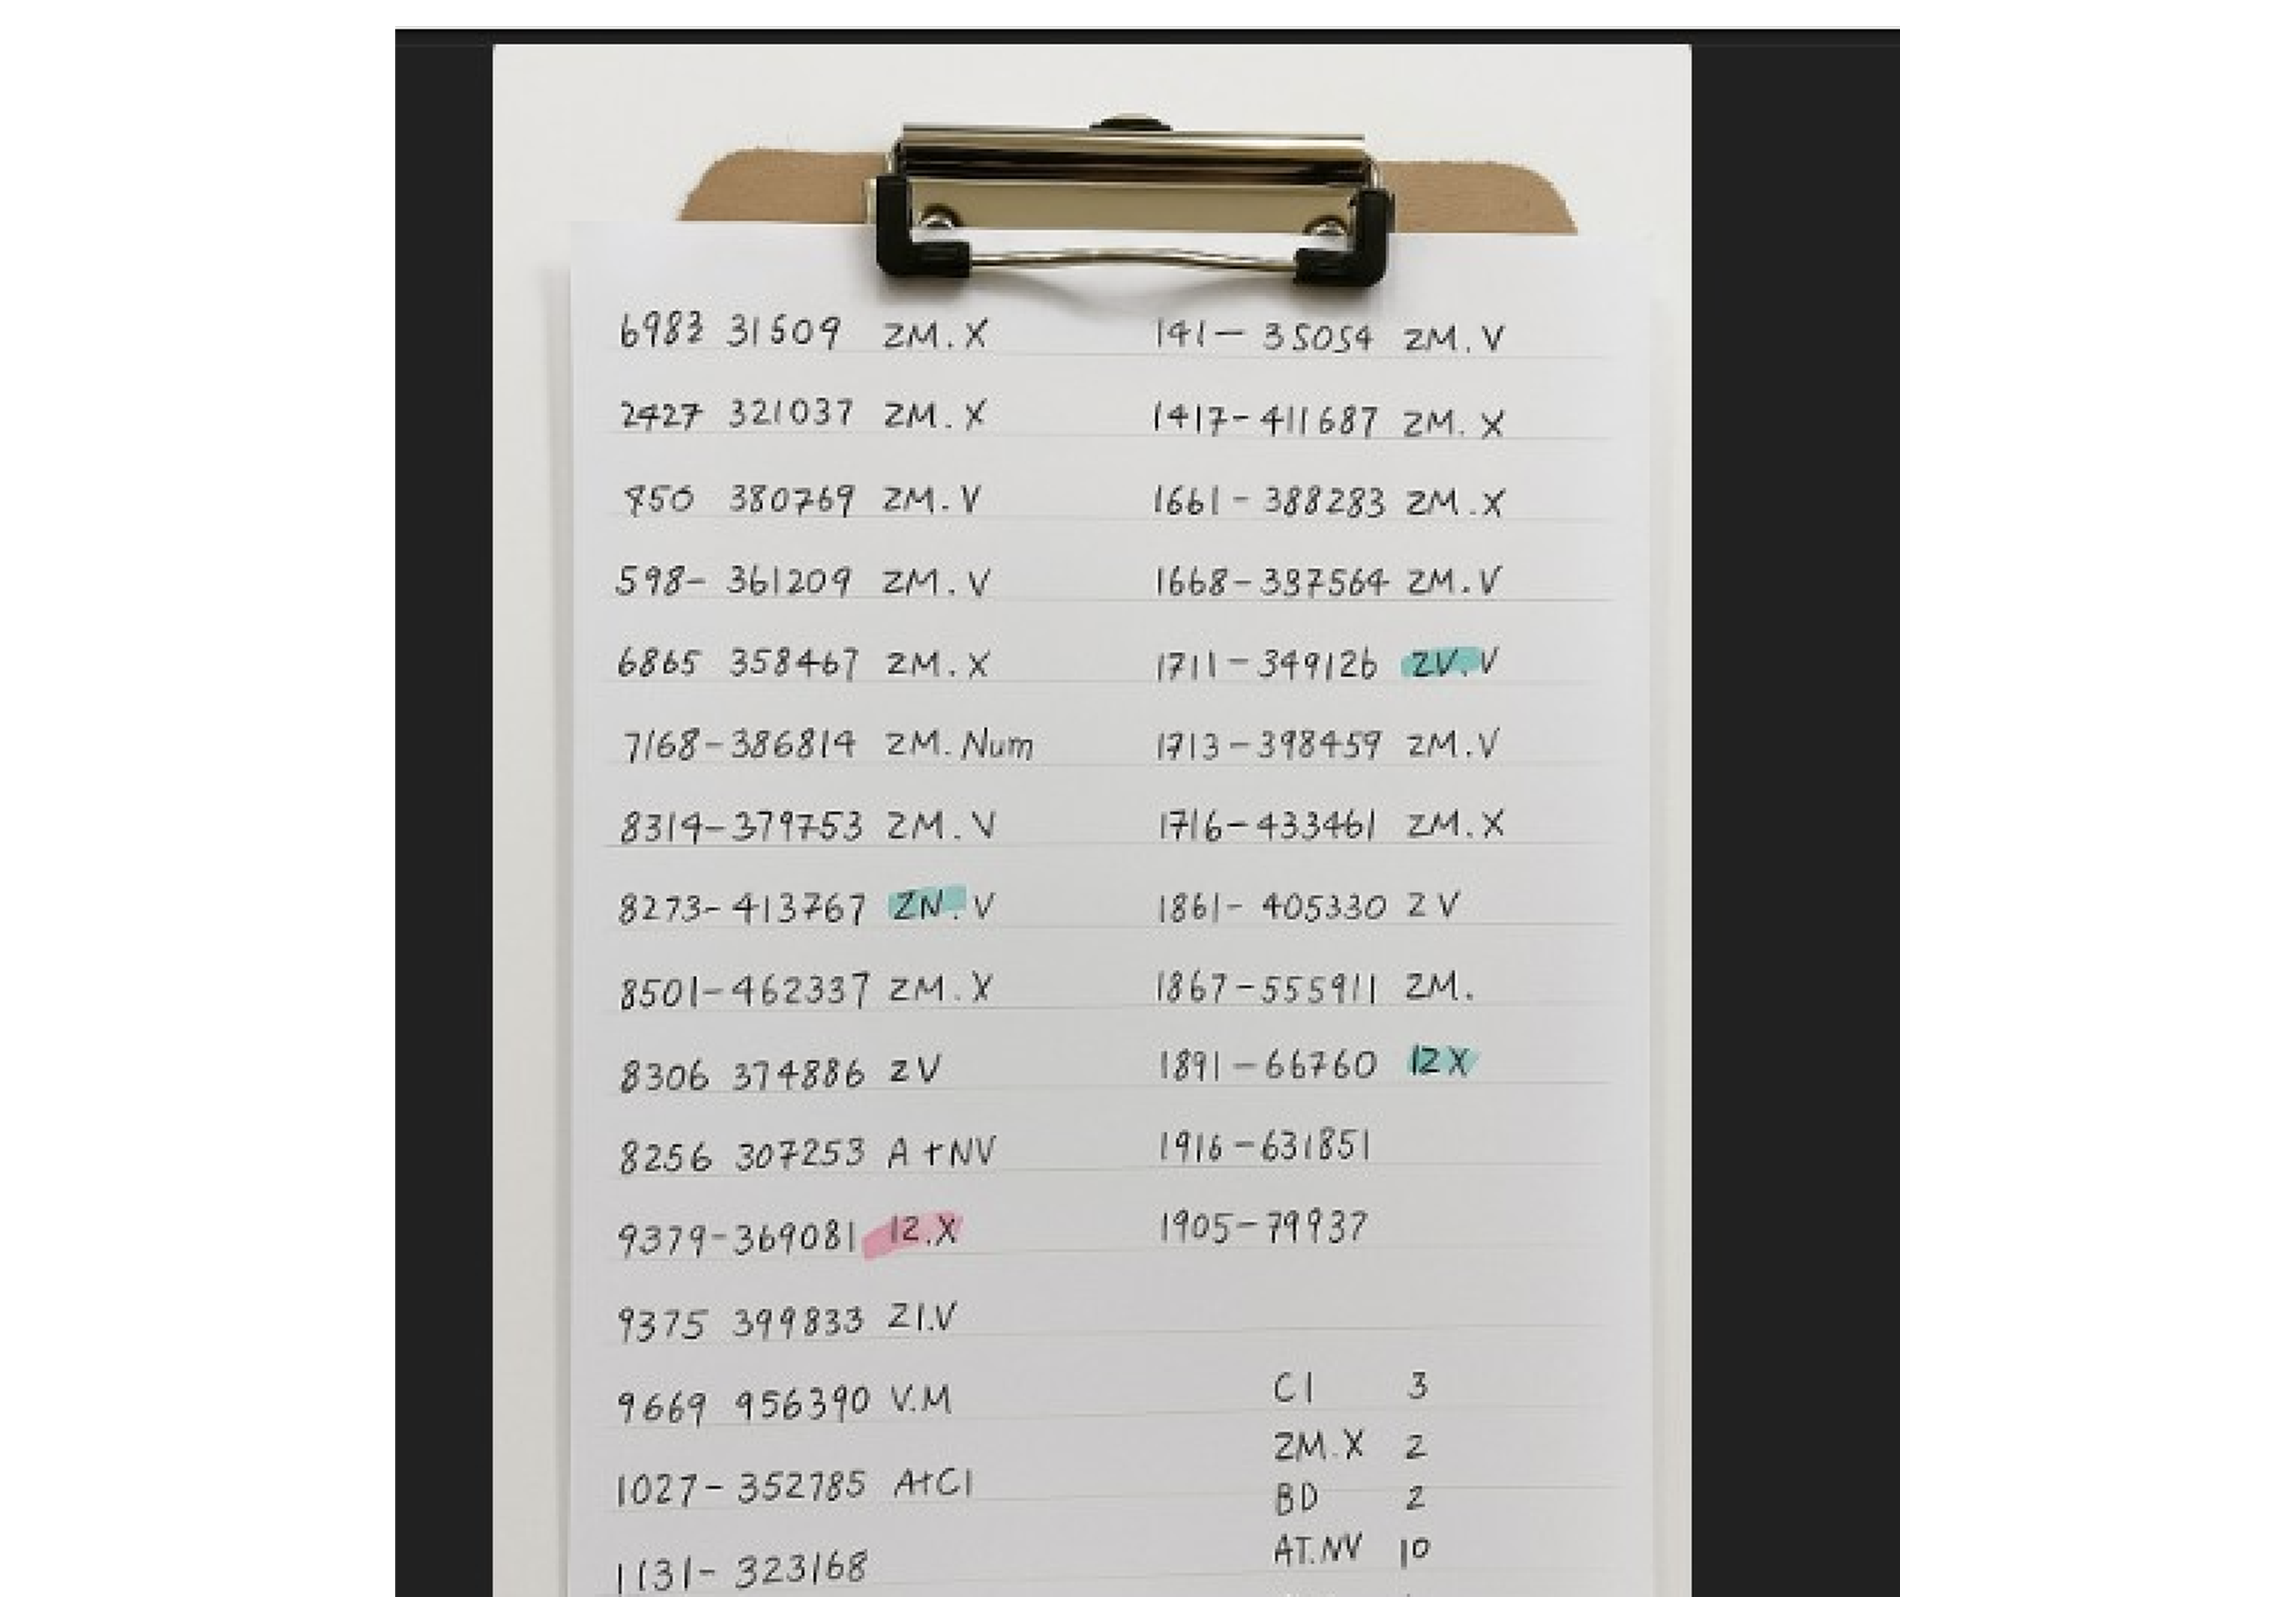 6983 31509 ZM.X
2427 321037 ZM.X
850 380769 ZM.V
598- 361209 ZM.V
6865 358467 ZM.X
7168-386814 ZM.Num
8314-379753 ZM.V
8273-413767 ZN.V
8501-462337 ZM.X
8306 374886 ZV
8256 307253 A+NV
9379-369081 12.X
9375 399833 Z1.V
9669 956390 V.M
1027-352785 A+C1
1131-323168
141- 35054 ZM.V
1417-411687 ZM.X
1661-388283 ZM.X
1668-397564 ZM.V
1711-349126 ZV.V
1713-398459 ZM.V
1716-433461 ZM.X
1861-405330 ZV
1867-555911 ZM.
1891-66760 12X
1916-631851
1905-79937
C1 3
ZM.X 2
BD 2
AT.NV 10